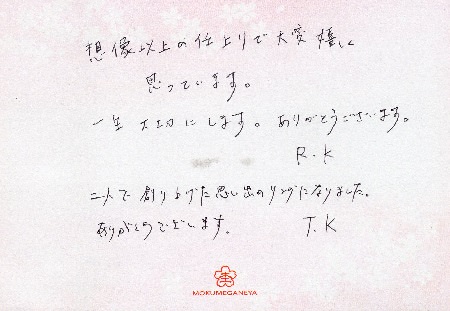 想像以上の仕上りで大変嬉しく
思っています。
一生大切にします。ありがとうございます。
R.K
二人で創り上げた思い出のリングになりました。
ありがとうございます。
T.K
MOKUMEGANEYA